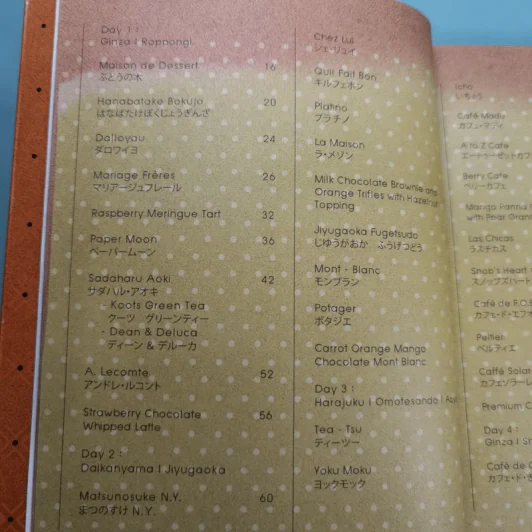 Day 1 :
Ginza | Roppongi
Maison de Dessert 16
ぶとうの木
Hanabatake Bokujo 20
はなばたけぼくじょうぎんざ
Dalloyau 24
ダロワイヨ
Mariage Frères 26
マリアージュフレール
Raspberry Meringue Tart 32
Paper Moon 36
ペーパームーン
Sadaharu Aoki 42
サダハル・アオキ
- Koots Green Tea
クーツ グリーンティー
- Dean & Deluca
ディーン & デルーカ
A. Lecomte 52
アンドレ・ルコント
Strawberry Chocolate 56
Whipped Latte
Day 2 :
Daikanyama | Jiyugaoka
Matsunosuke N.Y. 60
まつのすけ N.Y.
Chez Lui
シェ・リュイ
Quil Fait Bon
キルフェボン
Platino
プラチノ
La Maison
ラ・メゾン
Milk Chocolate Brownie and
Orange Trifles with Hazelnut
Topping
Jiyugaoka Fugetsudo
じゆうがおか ふうげつどう
Mont - Blanc
モンブラン
Potager
ポタジエ
Carrot Orange Mango
Chocolate Mont Blanc
Day 3 :
Harajuku | Omotesando |
Tea - Tsu
ティーツー
Yoku Moku
ヨックモック
Icho
いちょう
Café Madu
カフェ・マディ
A to Z Café
エートゥーゼットカフ
Berry Café
ベリーカフェ
Mango Panna
with Pear
Las Chicas
ラスチカス
Snob's Heart
スノッブズハート
Café de F.O.B
カフェ・ド・エフオ
Peltier
ペルティエ
Caffé Solar
カフェソラーレ
Premium C
Day 4 :
Ginza |
Café de
カフェ・ド・